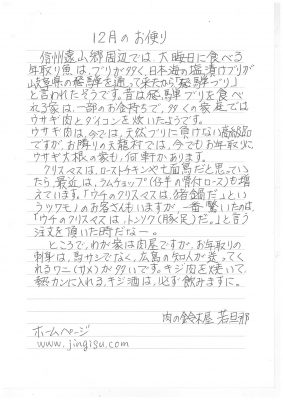 12月のお便り
信州遠山郷周辺では、大晦日に食べる
年取り魚は、ブリが多く、日本海の塩漬けブリが
岐阜県の飛騨を通って来たから「飛騨ブリ」
と言われたそうです。昔は飛騨ブリを食べ
れる家は、一部のお金持ちで、多くの家庭では
ウサギ肉とダイコンを炊いたようです。
ウサギ肉は、今では、天然ブリに負けない高級品
ですが、お隣りの天龍村では、今でもお年取りに
ウサギ大根の家も、何軒かあります。
クリスマスは、ローストチキンや七面鳥だと思ってい
たら、最近は、ラムチョップ(仔羊の骨付ロース)も増
えています。「ウチのクリスマスは、猪鍋だ」とい
うツワモノのお客さんもいますが、一番驚いたのは
「ウチのクリスマスは、トンソク(豚足)だ。」と言う
注文を頂いた時だなー。
ところで、わが家は肉屋ですが、お年取りの
刺身は、馬サシでなく、広島の知人が送ってく
れるワニ(サメ)が多いです。キジ肉を焼いて、
熱カンに入れる、キジ酒は、必ず飲みますに。
肉の鈴木屋 若旦那
ホームページ
www.jingisu.com